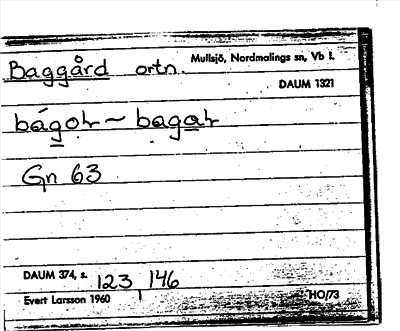 Baggård ortn. Mullsjö, Nordmalings sn, Vb l.
DAUM 1321
bágoɫ ~ bagaɫ
Gn 63
DAUM 374, s. 123, 146
Evert Larsson 1960 HO/73